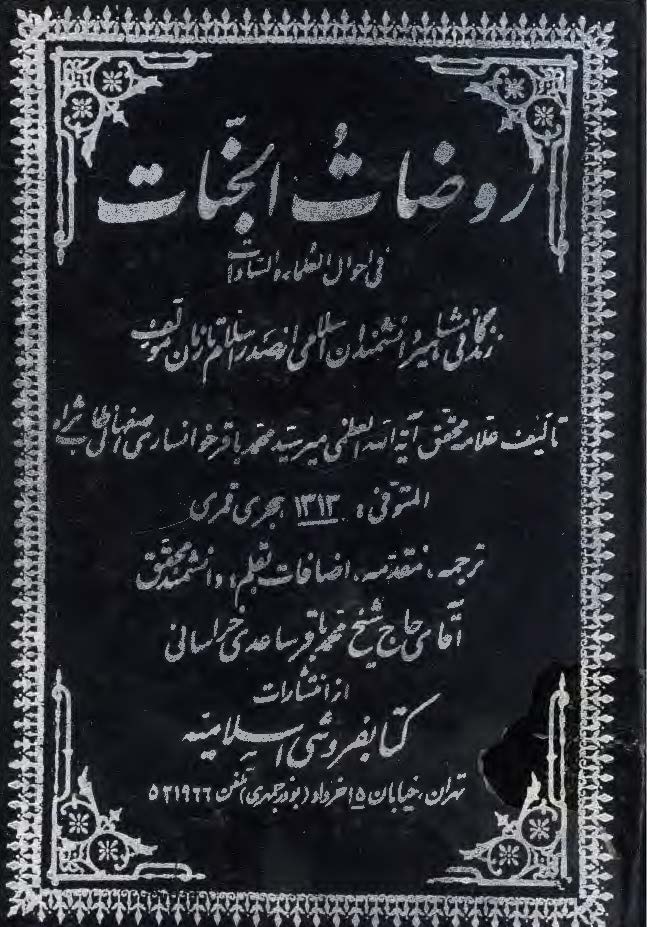 روضاتُ الجنّات
فی احوال العلماء و السّادات
زندگانی مشاهیر دانشمندان اسلامی از صدر اسلام تا زمان مؤلف
تألیف علامه محقق آیة الله العظمی میر سید محمد باقر خوانساری اصفهانی طاب ثراه
المتوفی: ۱۳۱۳ هجری قمری
ترجمه، مقدمه، اضافات بقلم: دانشمند محقق
آقای حاج شیخ محمد باقر ساعدی خراسانی
از انتشارات
کتابفروشی اسلامیّه
تهران، خیابان ۱۵ خرداد (بوذرجمهری) تلفن ۵۲۱۹۶۶